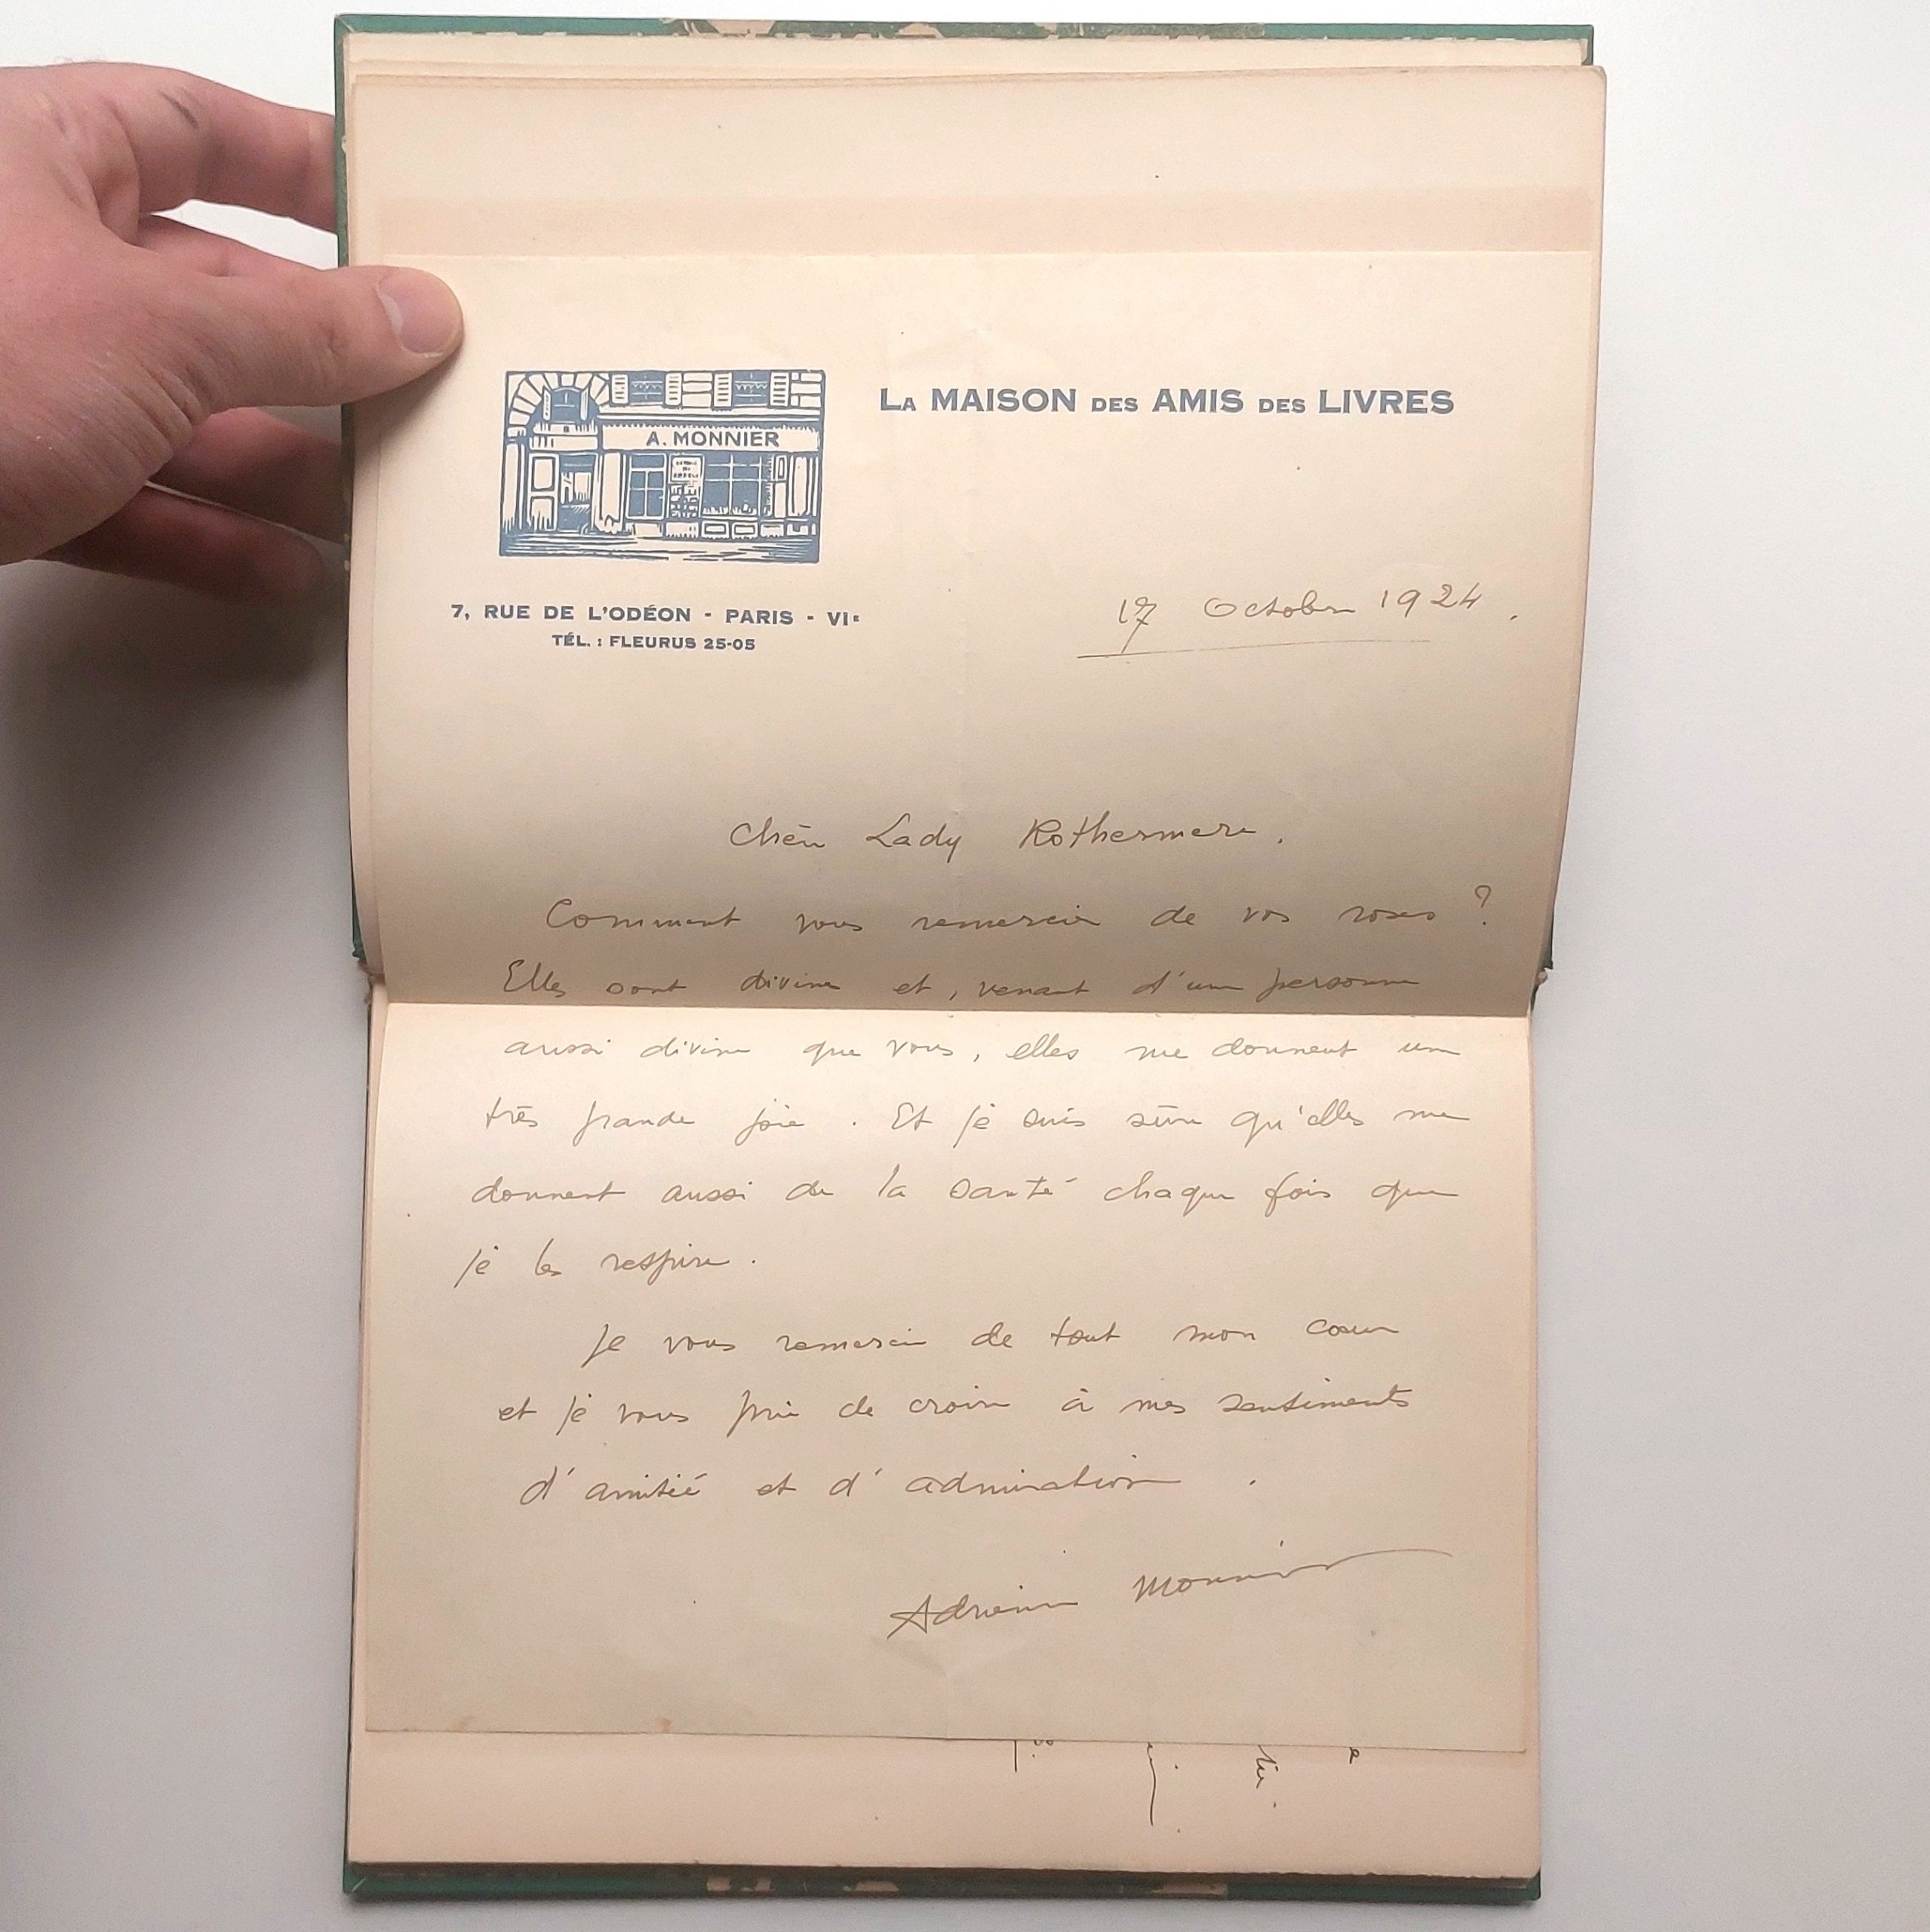 La MAISON DES AMIS DES LIVRES
A. MONNIER
7, RUE DE L'ODÉON - PARIS - VIe
TÉL. : FLEURUS 25-05
17 Octobre 1924.
Chère Lady Rothermere.
Comment vous remercier de vos roses ?
Elles sont divines et, venant d'une personne
aussi divine que vous, elles me donnent une
très grande joie. Et je suis sûre qu'elles me
donnent aussi de la santé chaque fois que
je les respire.
Je vous remercie de tout mon cœur
et je vous prie de croire à mes sentiments
d'amitié et d'admiration.
Adrienne Monnier